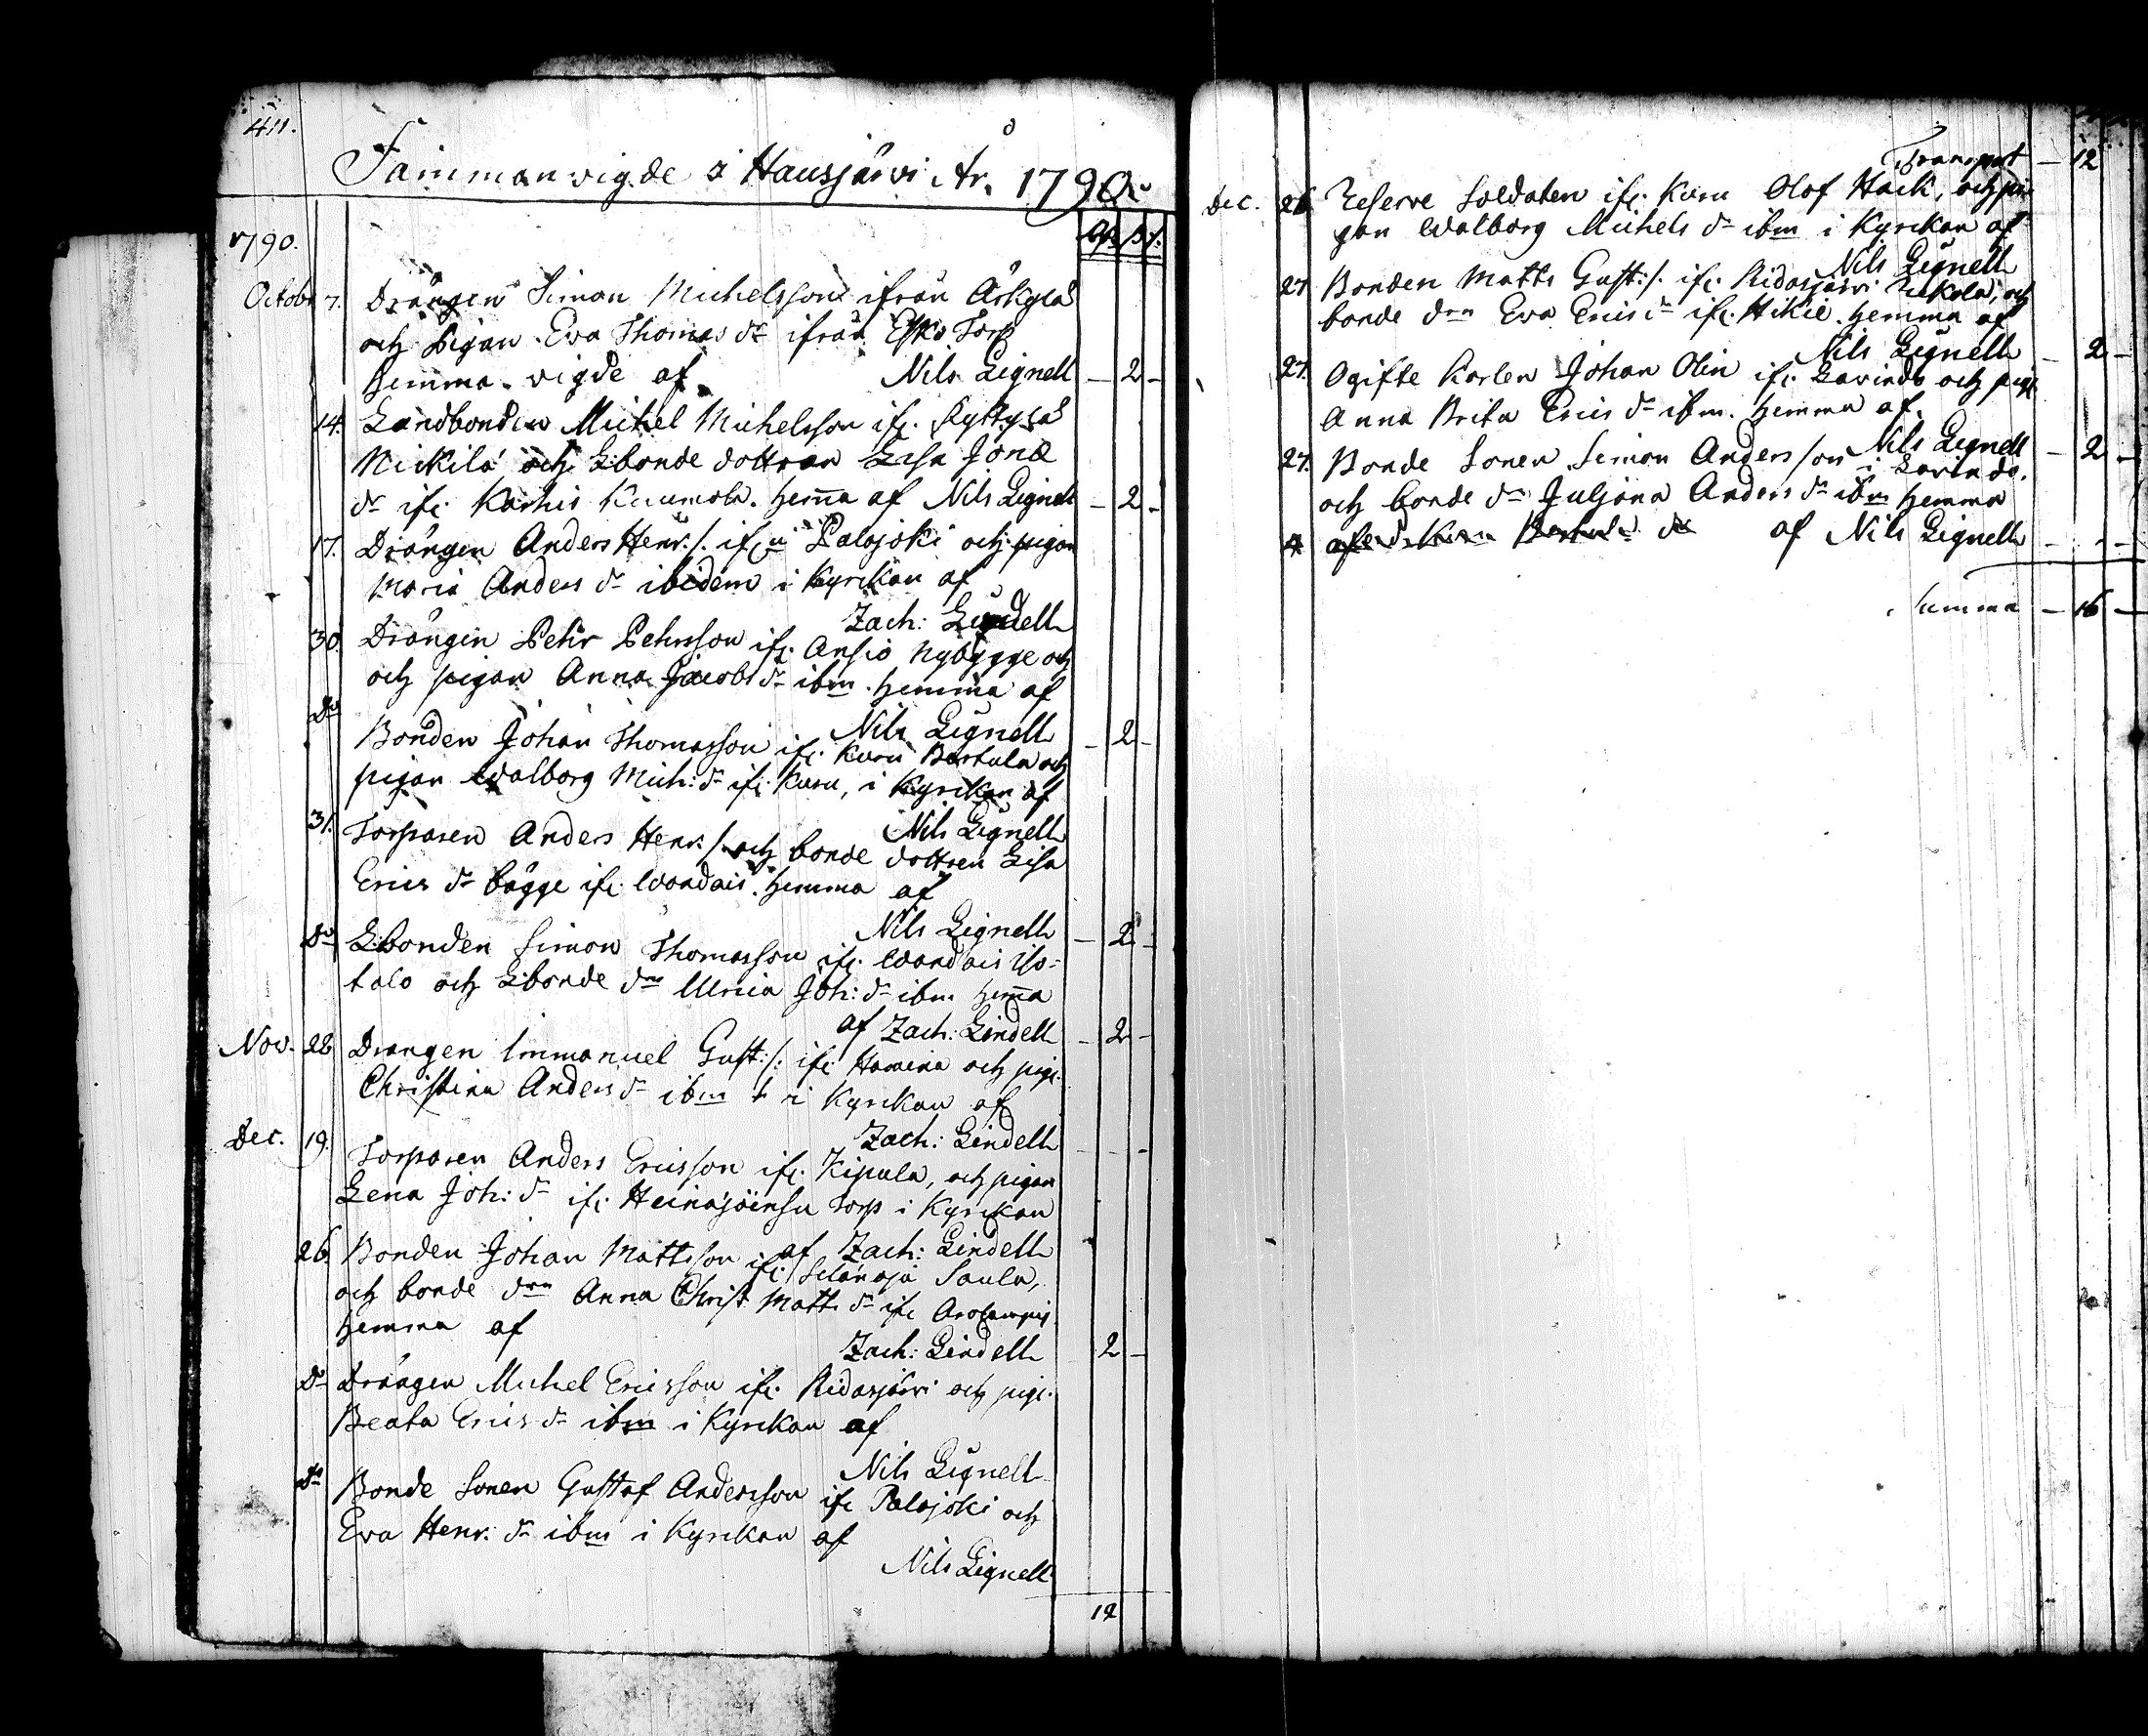 411.
Sammanvigde i Hausjärvi År. 1790.
1790.
Octobr 7. Drängen Simon Michelsson ifrån Årkylä
och Pigan Eva Thomæ dr ifrån Esko Torp
hemma vigde af Nils Lignell — 2 —
14. Landbonden Michel Michelsson ifr. Ryttylä
Mickilä och Lbonde dottran Lisa Jonæ
dr ifr. Karhis Kaumola. hem̄a af Nils Lignell — 2 —
17. Drängen Anders Henr: s. ifr. Palojoki och pigan
Maria Anders dr ibidem i Kyrckan af
Zach: Lindell
30. Drängen Pehr Pehrsson ifr. Ansio nybygge och
och pigan Anna Jacobs dr ibm. hemma af
Nils Lignell — 2 —
Do Bonden Johan Thomasson ifr. Kuru Bertula och
pigan Walborg Mich: dr ifr. Kuru, i Kyrckan af
Nils Lignell
31. Torparen Anders Henr: s. och bonde dottren Lisa
Erics dr bägge ifr. Wandais. hemma af
Nils Lignell — 2 —
Do Lbonden Simon Thomasson ifr. Wandais Iso-
talo och Lbonde drn Ulrica Joh: dr ibm hem̄a
af Zach: Lindell — 2 —
Nov. 28 Drängen Immanuel Gust: s: ifr. Hamina och pig:
Christina Anders dr ibm i Kyrckan af
Zach: Lindell — — —
Dec. 19. Torparen Anders Ericsson ifr. Kipula, och pigan
Lena Joh: dr ifr. Heinäjoensu Torp i Kyrckan
af Zach: Lindell
26. Bonden Johan Mattsson ifr. Selänoja Saula,
och bonde drn Anna Christ Matts dr ifr.
hemma af
Zach: Lindell 2 —
Do Drängen Michel Ericsson ifr. Ridasjärvi och pig:
Beata Erics dr ibm i Kyrckan af
Nils Lignell
Do Bonde Sonen Gustaf Andersson ifr Palojoki och
Eva Henr: dr ibm i Kyrckan af
Nils Lignell
12
Transport — 12
Dec. 26. Reserve Soldaten ifr. Kuru Olof Hack, och pi-
gan Walborg Michels dr ibm i Kyrckan af
Nils Lignell
27 Bonden Matts Gust: s. ifr. Ridasjärvi Uckola, och
bonde drn Eva Erics dr ifr. Hikie. hemma af
Nils Lignell — 2 —
27. Ogifte Karlen Johan Olin ifr. Lavindo och pig:
Anna Brita Erics dr ibm. hemma af.
Nils Lignell — 2 —
27. Bonde Sonen Simon Andersson i Lavindo.
och bonde drn Juljana Anders dr ibm hemma
af Nils Lignell — - —
Summa — 16 —